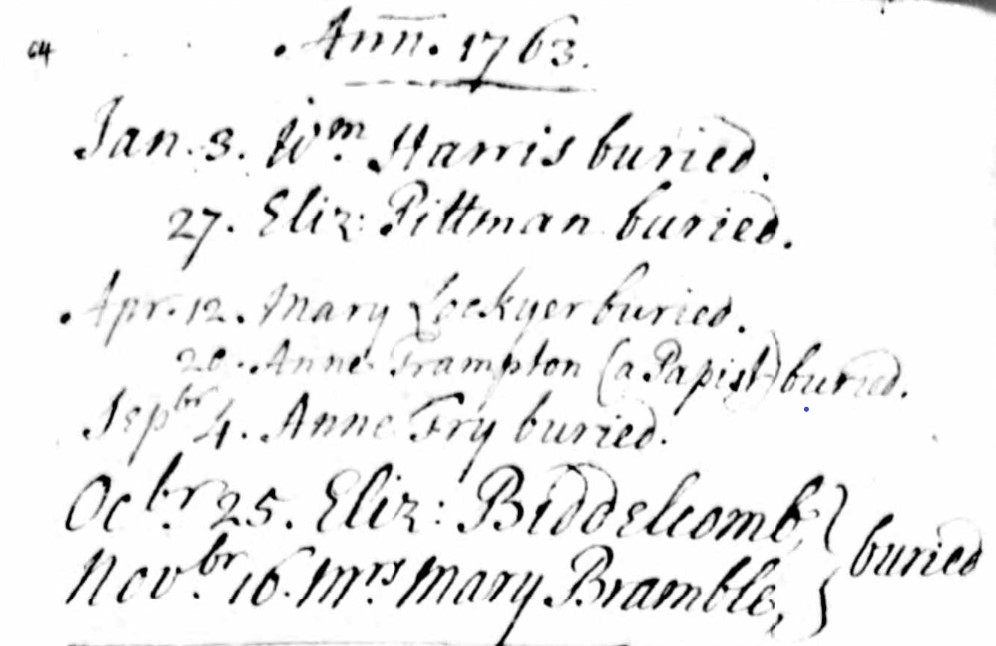 64
Ann. 1763.
Jan. 3. Wm. Harris buried.
27. Eliz: Pittman buried.
Apr. 12. Mary Lockyer buried.
20. Anne Frampton (a Papist) buried.
Sepbr 4. Anne Fry buried.
Ocbr. 25. Eliz: Biddelcomb, } buried
Novbr. 16. Mrs Mary Bramble, }